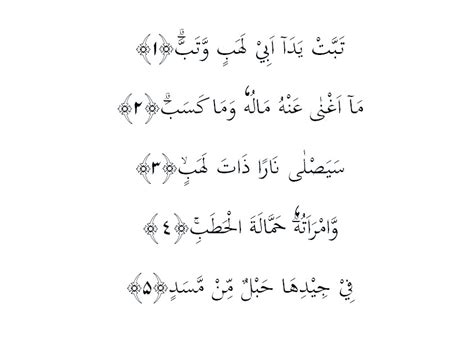 تَبَّتْ يَدَاۤ اَبِيْ لَهَبٍ وَّتَبَّ ؕ﴿۱﴾
مَاۤ اَغْنٰى عَنْهُ مَالُهٗ وَمَا كَسَبَ ؕ﴿۲﴾
سَيَصْلٰى نَارًا ذَاتَ لَهَبٍ ۙ﴿۳﴾
وَّامْرَاَتُهٗ ؕ حَمَّالَةَ الْحَطَبِ ۚ﴿٤﴾
فِيْ جِيْدِهَا حَبْلٌ مِّنْ مَّسَدٍ﴿۵﴾